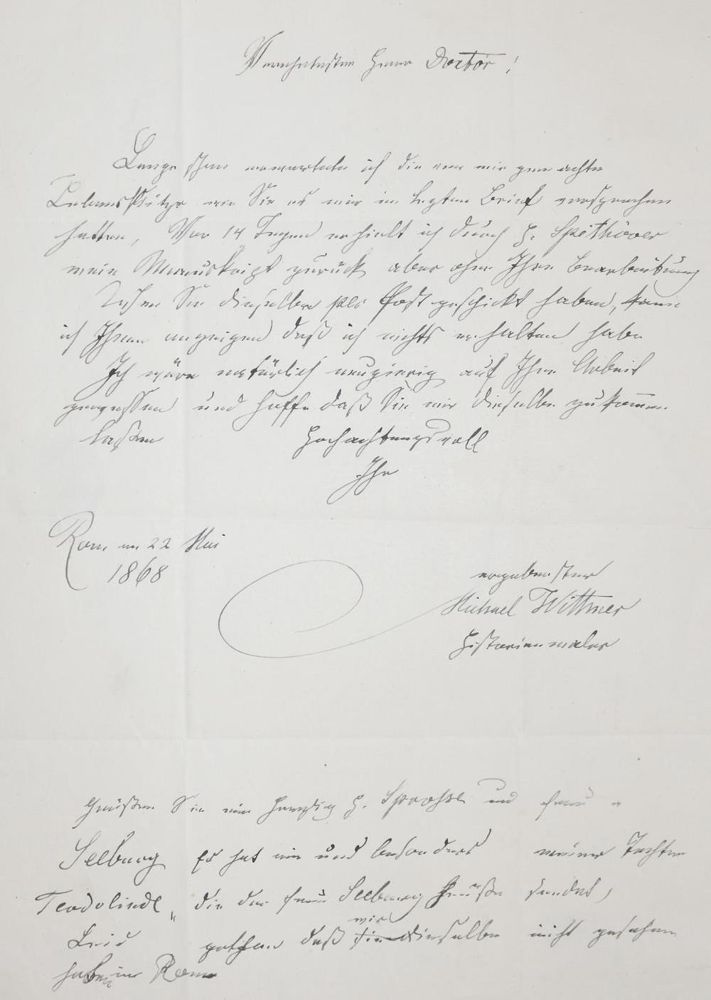 Verehrtester Herr Doctor!
Lange schon erwartete ich die von mir gemachte
Lebensskizze wie Sie es mir im letzten Brief versprochen
hatten, Vor 14 Tagen erhielt ich durch H. Spithöver
mein Manuskript zurück aber ohne Ihre Bearbeitung
Sie dieselbe per Post geschickt haben, kann
ich Ihnen anzeigen daß ich nichts erhalten habe
Ich wäre natürlich neugierig auf Ihre Arbeit
und hoffe daß Sie mir dieselbe zukommen
lassen Hochachtungsvoll
Ihr
Rom am 22 Mai
1868
ergebenster
Michael Wittmer
Historienmaler
Grüßen Sie mir herzlich H. und Frau
Seeburg Es hat mir und besonders meiner Tochter
Teodolinde, die der Frau Seeburg Grüße sendet,
Leid gethan daß wir dieselbe nicht gesehen
haben in Rom